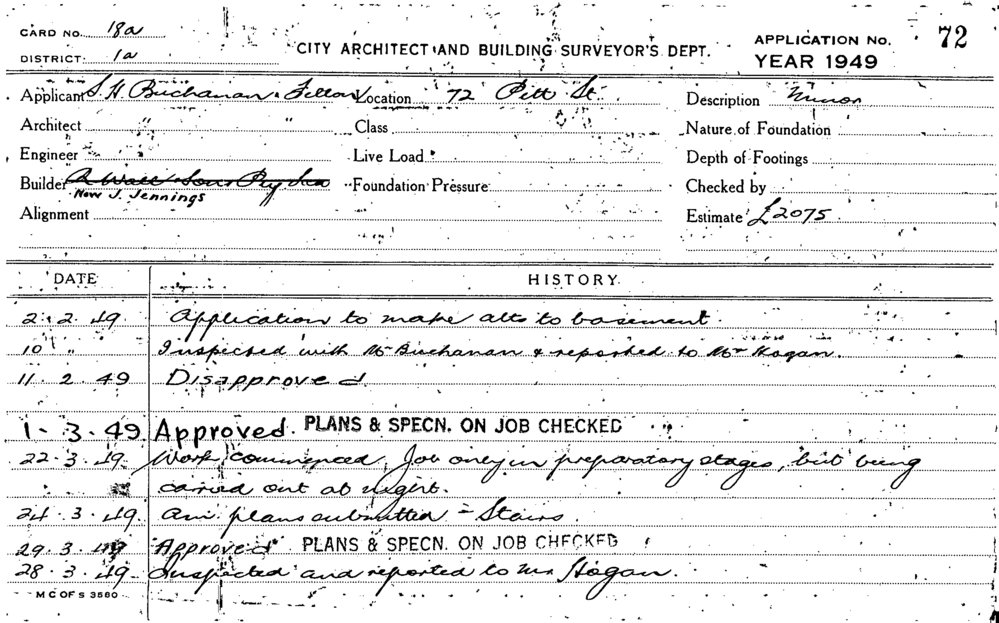 CARD No. 18a
DISTRICT 1a
CITY ARCHITECT AND BUILDING SURVEYOR'S DEPT.
APPLICATION No. 72
YEAR 1949
Applicant S. H. Buchanan & Felton Location 72 Pitt St. Description Minor
Architect Class Nature of Foundation
Engineer Live Load Depth of Footings
Builder A Wall & Sons Pty Ltd Foundation Pressure Checked by
Now J. Jennings
Alignment Estimate £2075
DATE HISTORY
2.2.49 Application to make alts to basement.
10 " Inspected with Mr Buchanan & reported to Mr Hogan.
11.2.49 Disapproved
1-3.49 Approved. PLANS & SPECN. ON JOB CHECKED
22.3.49 Work commenced, Job only in preparatory stages, but being
carried out at night.
24.3.49. Am. plans submitted - Stairs.
29.3.49 Approved PLANS & SPECN. ON JOB CHECKED
28.3.49. Inspected and reported to Mr Hogan.
M C OF S 3580